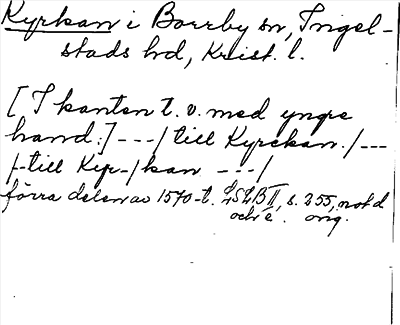 Kyrkan i Borrby sn, Ingel-
stads hd, Krist. l.
[I kanten t. v. med yngre
hand:] ---/till Kyrckan./---
/-till Kyr-/kan ---/
förra delen av 1570-t. LSLB II, s. 255, not d
och e. orig.